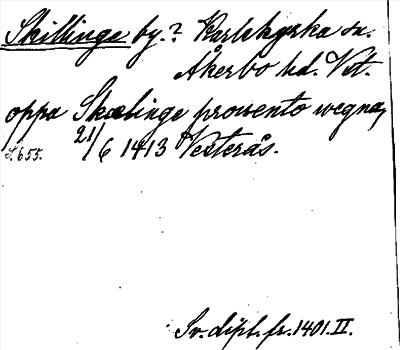 Skillinge by.? Karlskyrka sn.
Åkerbo hd. Vstm.
oppa Skælinge prowento wegna,
S. 655. 21/6 1413 Vesterås.
Sv. dipl. fr. 1401. II.